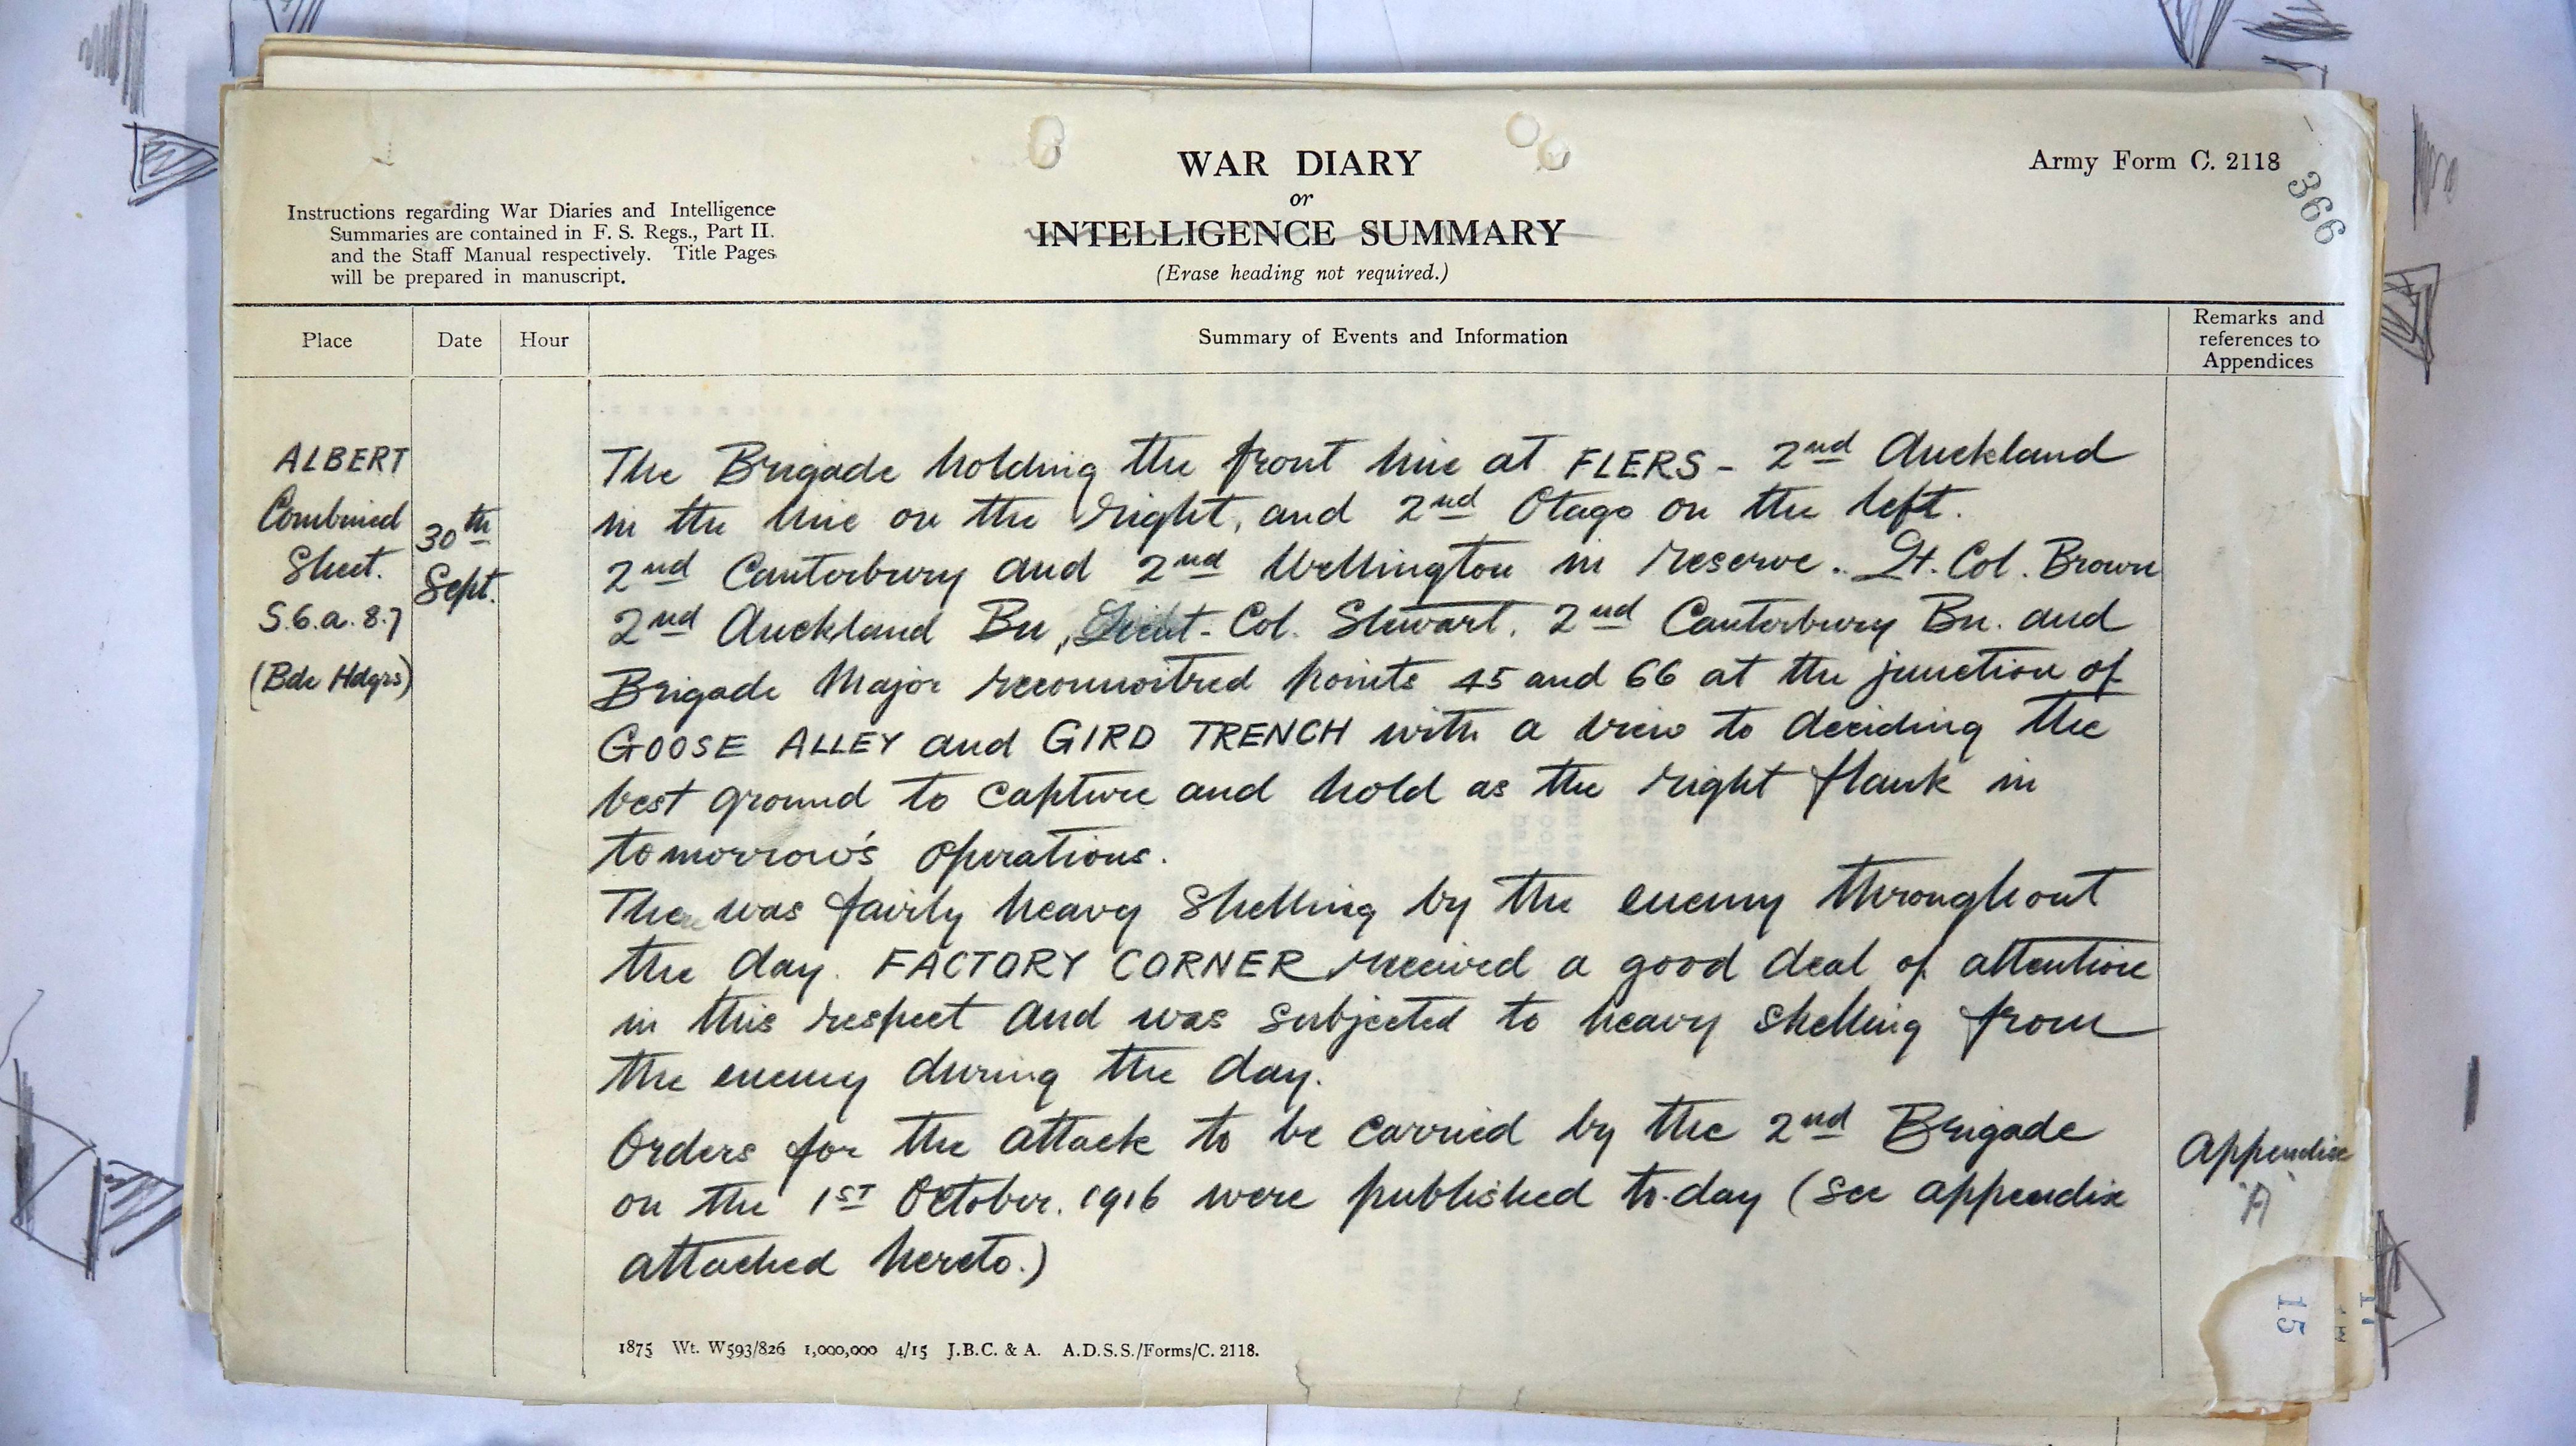 WAR DIARY
or
INTELLIGENCE SUMMARY
(Erase heading not required.)
Army Form C. 2118
366
Instructions regarding War Diaries and Intelligence
Summaries are contained in F. S. Regs., Part II.
and the Staff Manual respectively. Title Pages
will be prepared in manuscript.
Place
Date
Hour
Summary of Events and Information
Remarks and
references to
Appendices
ALBERT
Combined
Sheet.
S.6.a.8.7
(Bde Hdqrs)
30th
Sept.
The Brigade holding the front line at FLERS - 2nd Auckland
in the line on the right, and 2nd Otago on the left.
2nd Canterbury and 2nd Wellington in reserve. Lt. Col. Brown
2nd Auckland Bn, Lieut-Col. Stewart. 2nd Canterbury Bn. and
Brigade Major reconnoitred points 45 and 66 at the junction of
GOOSE ALLEY and GIRD TRENCH with a view to deciding the
best ground to capture and hold as the right flank in
tomorrow's operations.
There was fairly heavy shelling by the enemy throughout
the day. FACTORY CORNER received a good deal of attention
in this respect and was subjected to heavy shelling from
the enemy during the day.
Orders for the attack to be carried by the 2nd Brigade
on the 1ST October. 1916 were published to-day (see appendix
attached hereto.)
Appendix
"A"
15
1875 Wt. W593/826 1,000,000 4/15 J.B.C. & A. A.D.S.S./Forms/C. 2118.